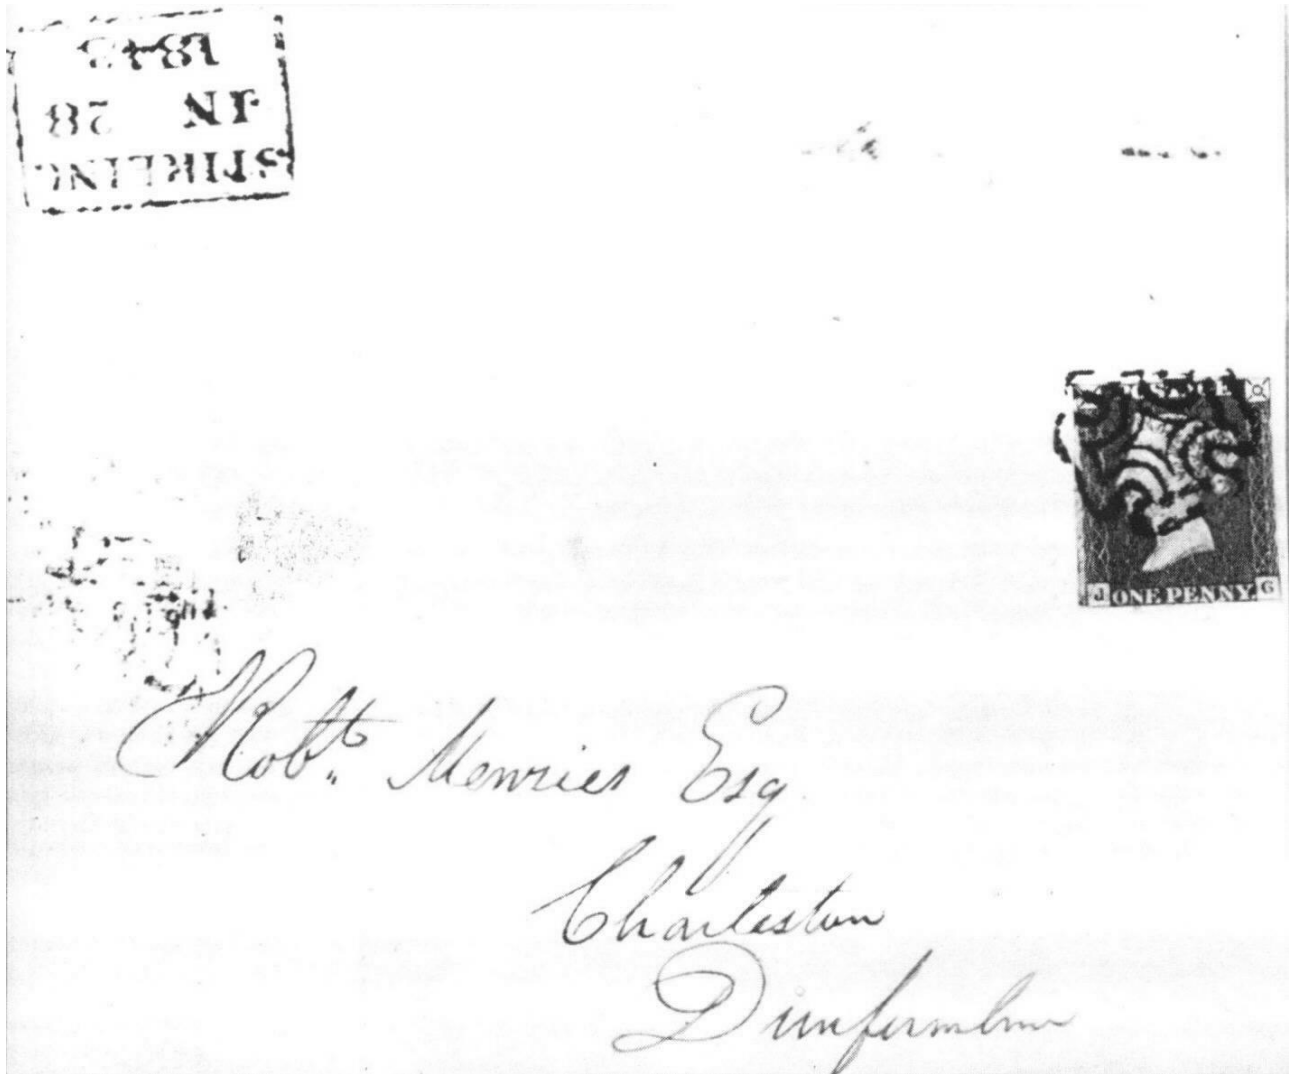 STIRLING
JN 28
POSTAGE
J ONE PENNY G
Robt. Menzies Esq
Charleston
Dunfermline